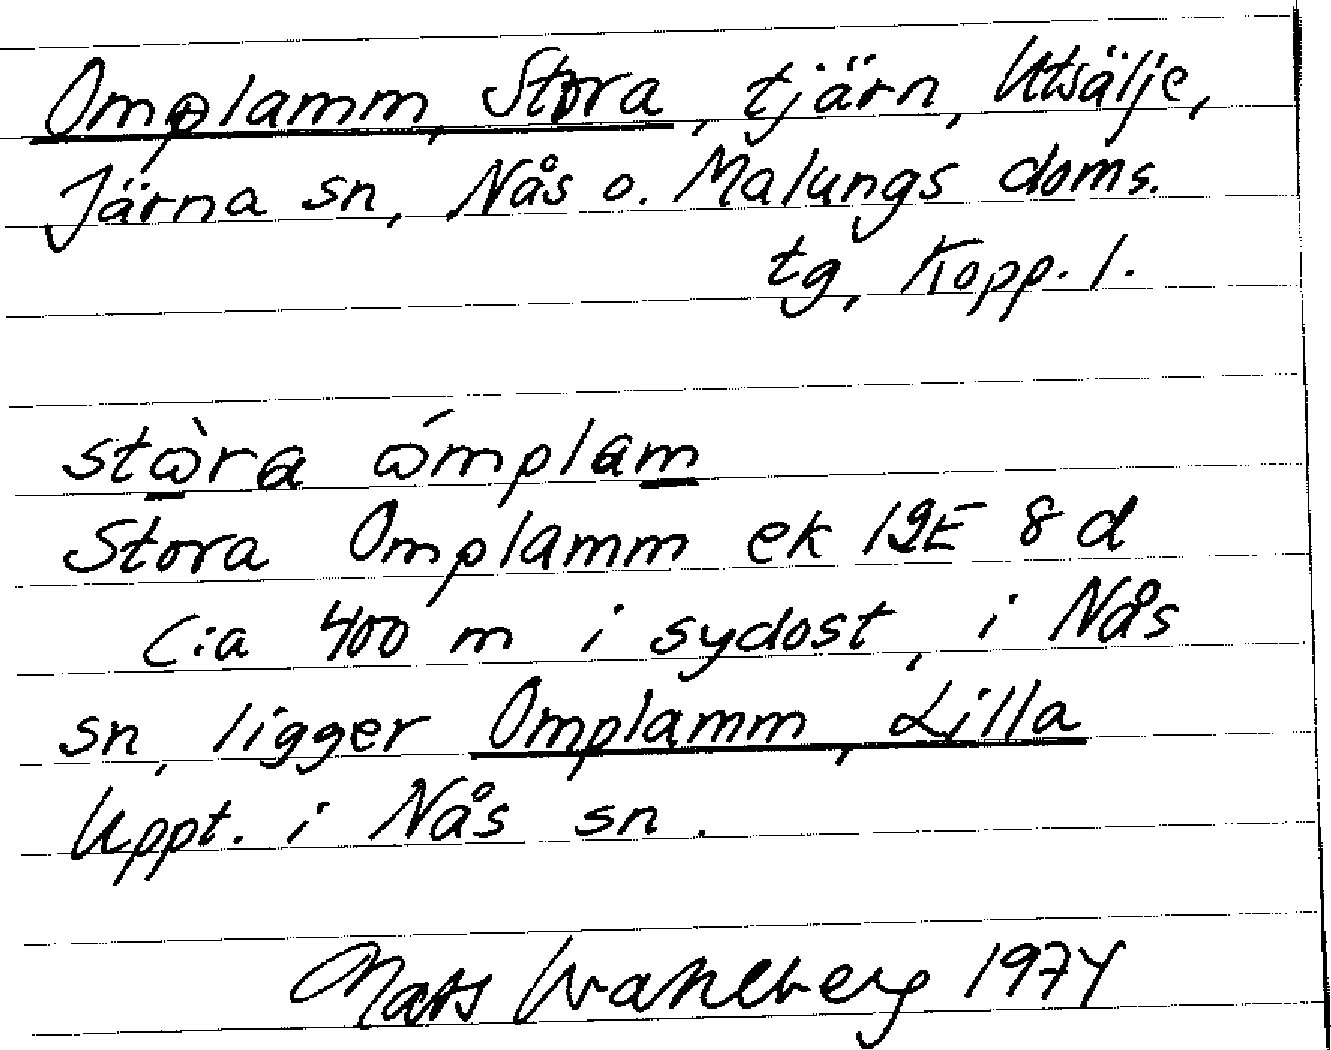 Omplamm, Stora, tjärn, Utsälje,
Järna sn, Nås o. Malungs doms.
tg, Kopp. l.
stὼra ώmplam
Stora Omplamm ek 12E 8 d
C:a 400 m i sydost, i Nås
sn, ligger Omplamm, Lilla
Uppt. i Nås sn.
Mats Wahlberg 1974